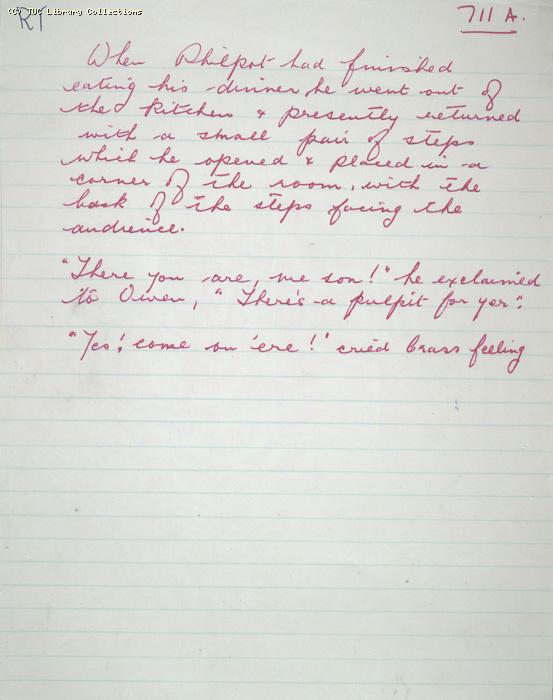 (C) TUC Library Collections
RT
711 A.
When Philpot had finished
eating his dinner he went out of
the kitchen & presently returned
with a small pair of steps
which he opened & placed in a
corner of the room, with the
back of the steps facing the
audience.
"There you are, me son!" he exclaimed
to Owen, "There's a pulpit for yer".
"Yes! come on 'ere!" cried Crass feeling